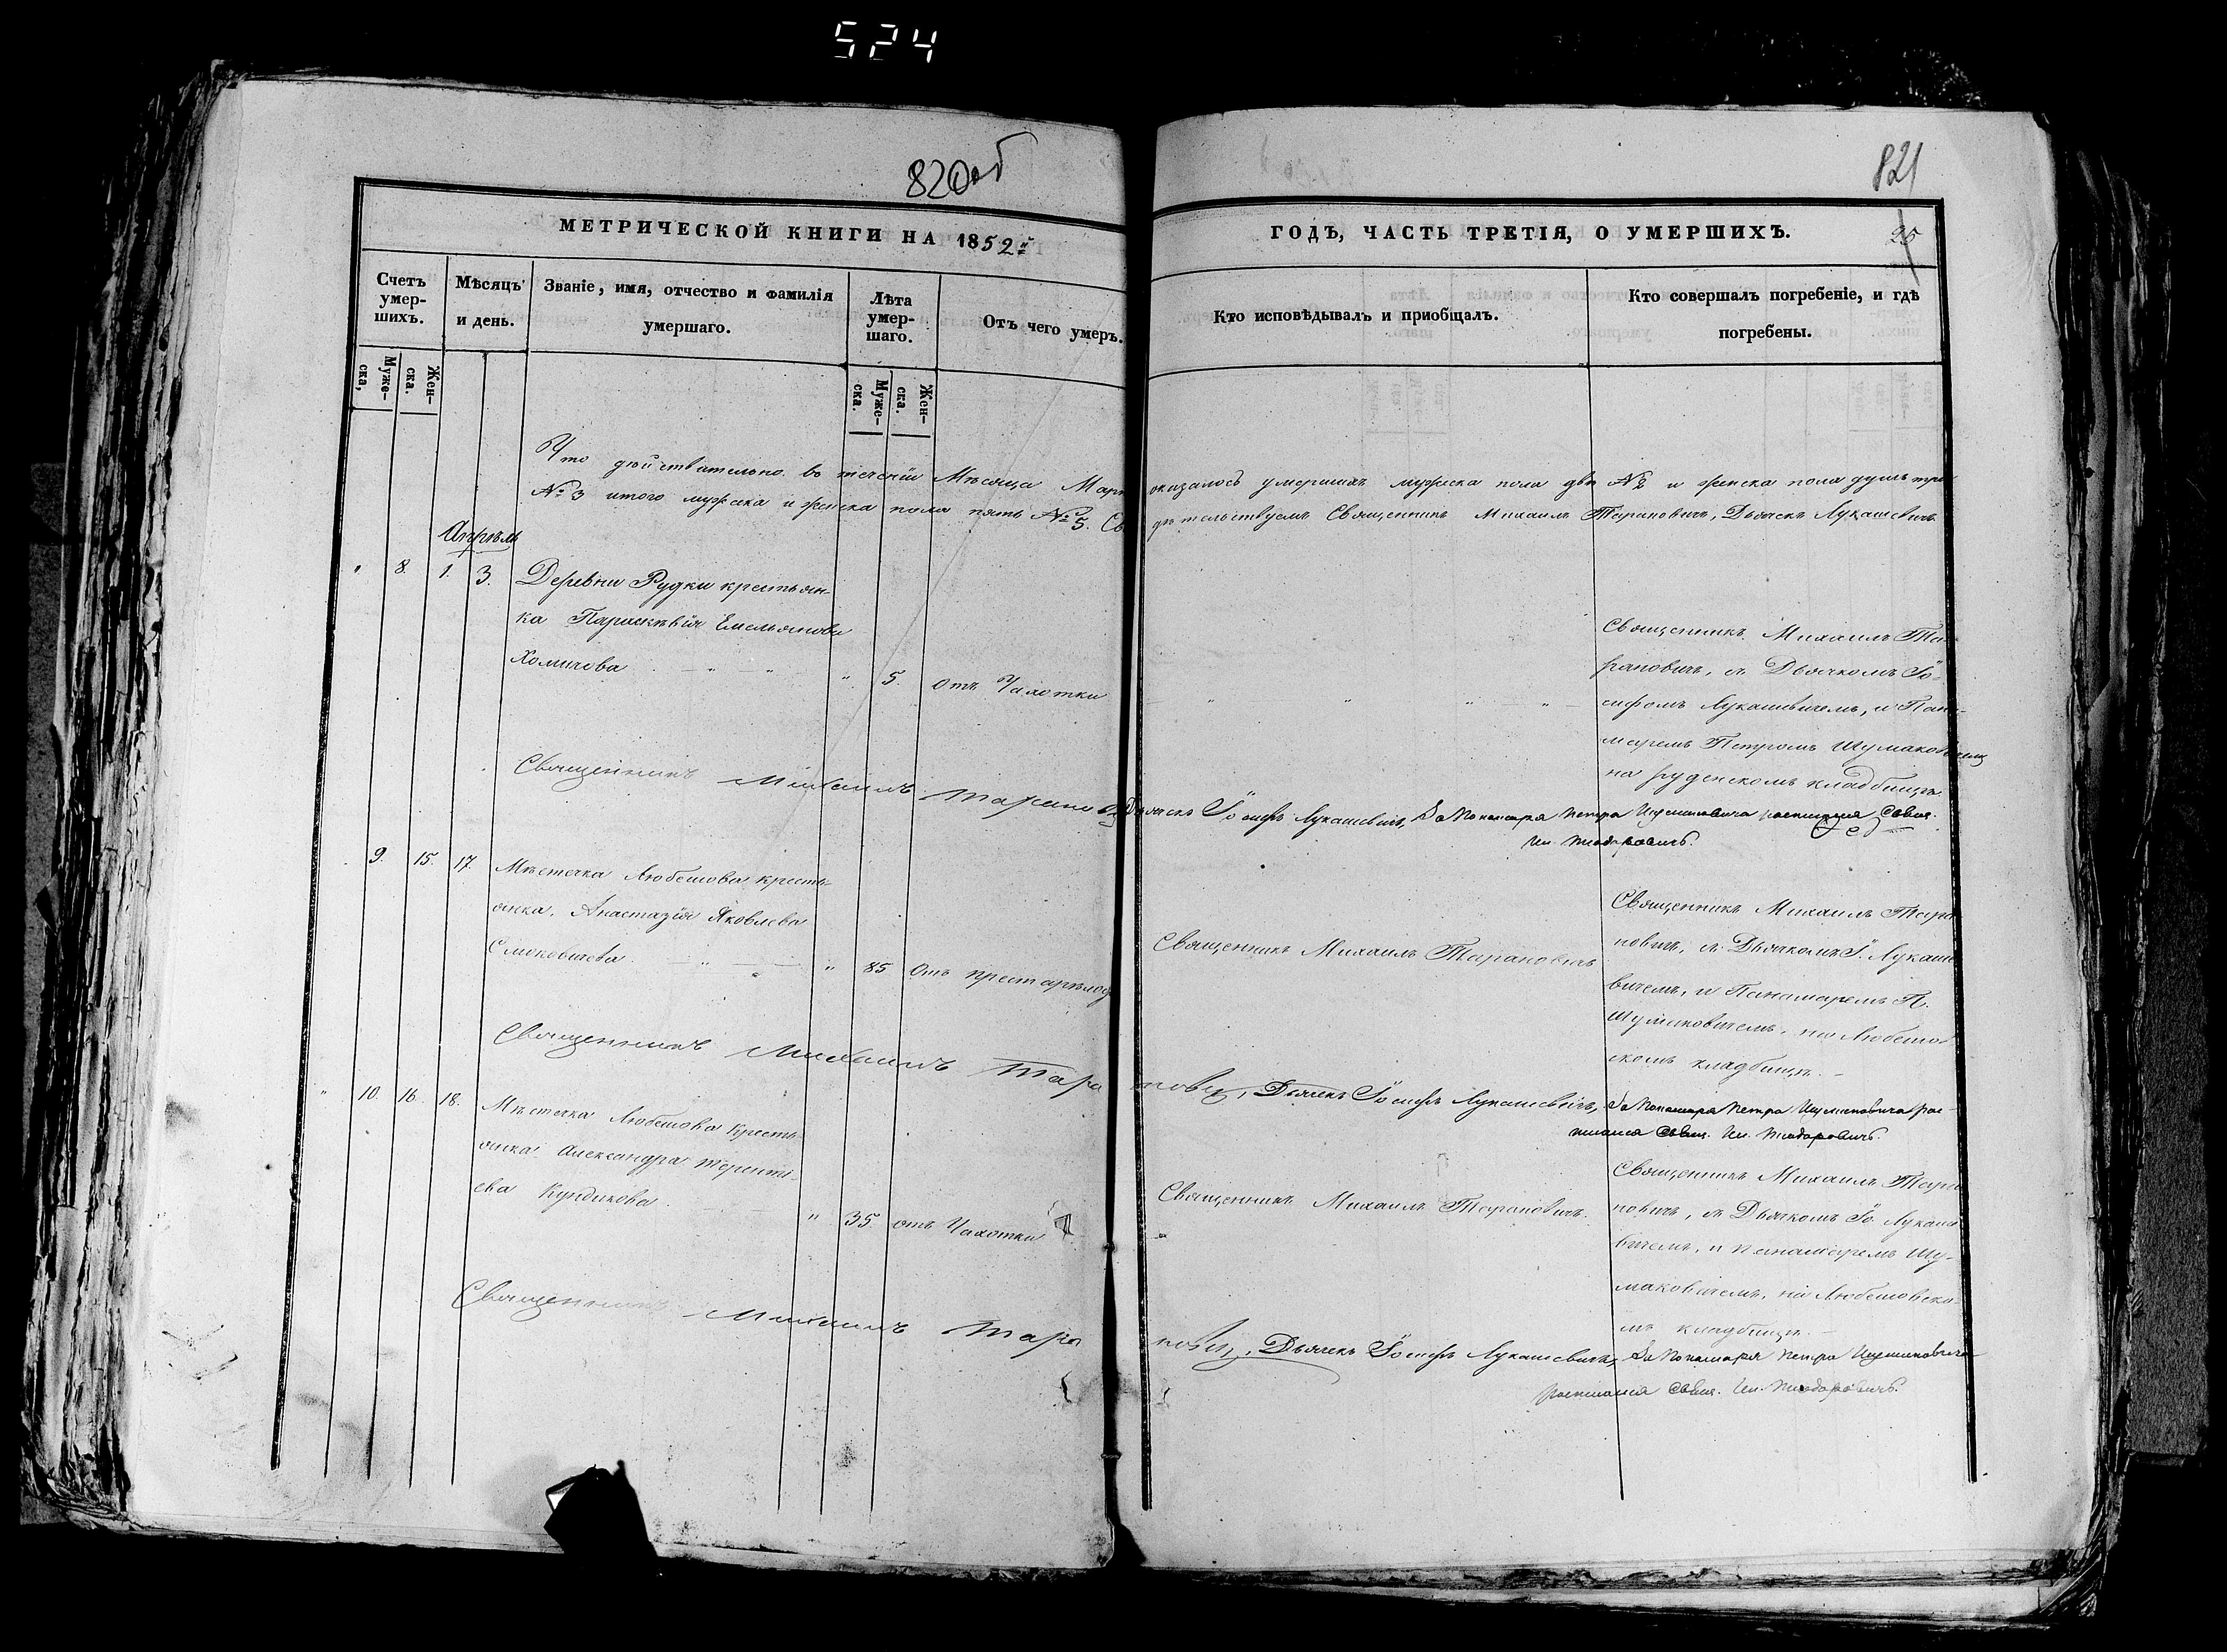 524
820об
821
МЕТРИЧЕСКОЙ КНИГИ НА 1852й
ГОДЪ, ЧАСТЬ ТРЕТІЯ, О УМЕРШИХЪ.
25
Счетъ умер-
шихъ.
Мѣсяцъ
и день.
Званіе, имя, отчество и фамилія
умершаго.
Лѣта
умер-
шаго.
Отъ чего умеръ.
Кто исповѣдывалъ и приобщалъ.
Кто совершалъ погребеніе, и гдѣ
погребены.
Муже-
ска,
Жен-
ска.
Муже-
ска.
Жен-
ска.
Что дѣйствительно въ теченіи Мѣсяца Мар оказалось умершихъ мужеска пола два №2 и женска пола душъ три
№3 итого мужска и женска пола пять №5. Свѣдѣтельствуемъ Священникъ Михаилъ Тарановичъ, Дьячекъ Лукашевичъ
Апрѣль
" 8. 1. 3. Деревни Рудки крестьян-
ка Параскевія Емельянова
Хомичева " 5. отъ Чахотки
Священникъ Михаилъ Та-
рановичъ, съ Дьячкомъ Іо-
сифомъ Лукашевичемъ, и Пано-
маремъ Петромъ Шумаковичемъ
на руденскомъ кладбищѣ
Священникъ Михаилъ Тарановичъ Дьячекъ Іосифъ Лукашевичъ, За Пономаря Петра Шумаковича росписался Свящ.
Ил. Теодоровичъ.
9. 15. 17. Мѣстечка Любешова кресть-
янка Анастазія Яковлева
" 85 отъ престарѣлос
Священникъ Михаилъ Тарановичъ
Священникъ Михаилъ Тара
новичъ, съ Дьячкомъ І. Лукаше
вичемъ, и Панамаремъ П.
Шумаковичемъ, на Любешов
скомъ кладбищѣ.
Священникъ Михаилъ Тарановичъ, Дьячекъ Іосифъ Лукашевичъ, За Пономаря Петра Шумаковича рос-
писался Свящ. Ил. Теодоровичъ.
" 10. 16. 18. Мѣстечка Любешова кресть-
янка Александра Теренті-
ева Кундикова " 35 отъ Чахотки
Священникъ Михаилъ Тарановичъ.
Священникъ Михаилъ Тара
новичъ, съ Дьячкомъ Іо. Лукаше
вичемъ, и Панамаремъ Шу-
маковичемъ, на Любешовско-
мъ кладбищѣ.
Священникъ Михаилъ Тарановичъ, Дьячекъ Іосифъ Лукашевичъ, За Пономаря Петра Шумаковича
росписался Свящ. Ил. Теодоровичъ.